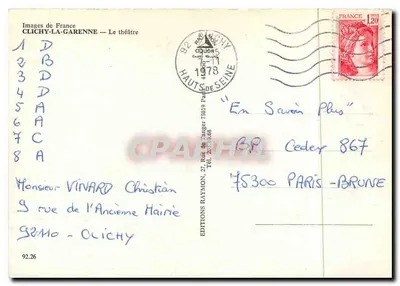 Images de France
CLICHY-LA-GARENNE — Le théâtre
1 D
2 B
3 D
4 D
5 A
6 A
7 C
8 A
Monsieur VINARD Christian
9 rue de l'Ancienne Mairie
92110 - CLICHY
92.26
92 CLICHY
1978
HAUTS DE SEINE
FRANCE
1,20
"En Savoir Plus"
BP Cedex 867
75300 PARIS-BRUNE
EDITIONS RAYMON, 27, Rue de 75019 Paris
CPARAMA